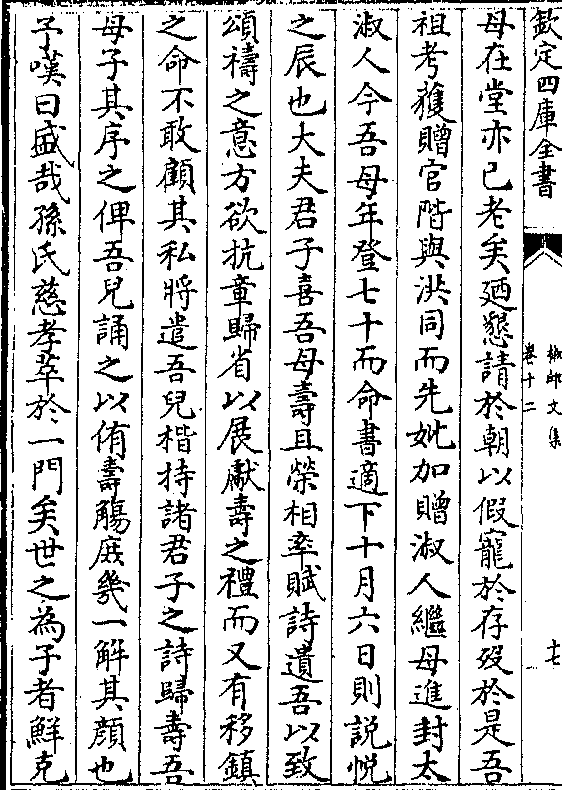 欽定四庫全書
柳邨文集
卷十二
十七
母在堂亦已老矣廼懇請於朝以假寵於存歿於是吾
祖考獲贈官階與洪同而先妣加贈淑人繼母進封太
淑人今吾母年登七十而命書適下十月六日則説悦
之辰也大夫君子喜吾母壽且榮相率賦詩遺吾以致
頌禱之意方欲抗章歸省以展獻壽之禮而又有移鎮
之命不敢顧其私將遣吾兒楷持諸君子之詩歸壽吾
母子其序之俾吾兒誦之以侑壽觴庶幾一解其顔也
予嘆曰盛哉孫氏慈孝萃於一門矣世之為子者鮮克